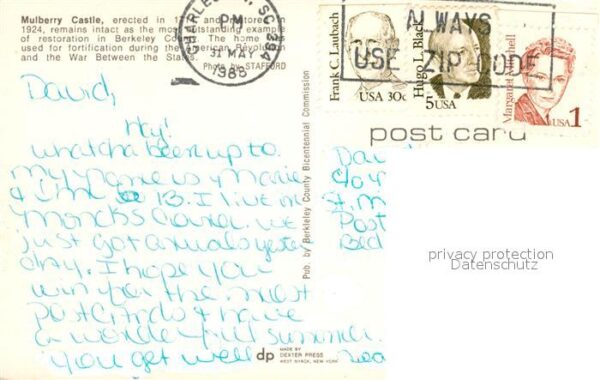 Mulberry Castle, erected in 17 and restored in
1924, remains intact as the most outstanding example
of restoration in Berkeley County. The home was
used for fortification during the American Revolution
and the War Between the States.
Photo by STAFFORD
CHARLESTON, SC
PM
31 MAY
1988
ALWAYS
USE ZIP CODE
Frank C. Laubach
USA 30c
Hugo L. Black
5 USA
Margaret Mitchell
USA 1
post card
David,
Hey!
whatcha been up to.
My name is Marie
& I'm 13. I live in
Moncks Corner. We
just got annuals yester
day. I hope you
win for the most
postcards & have
a wonderful summer.
You get well
Dav
c/o
St. M
Post
Bed
Pub. by Berkeley County Bicentennial Commission
dp
MADE BY
DEXTER PRESS
WEST NYACK, NEW YORK
privacy protection
Datenschutz